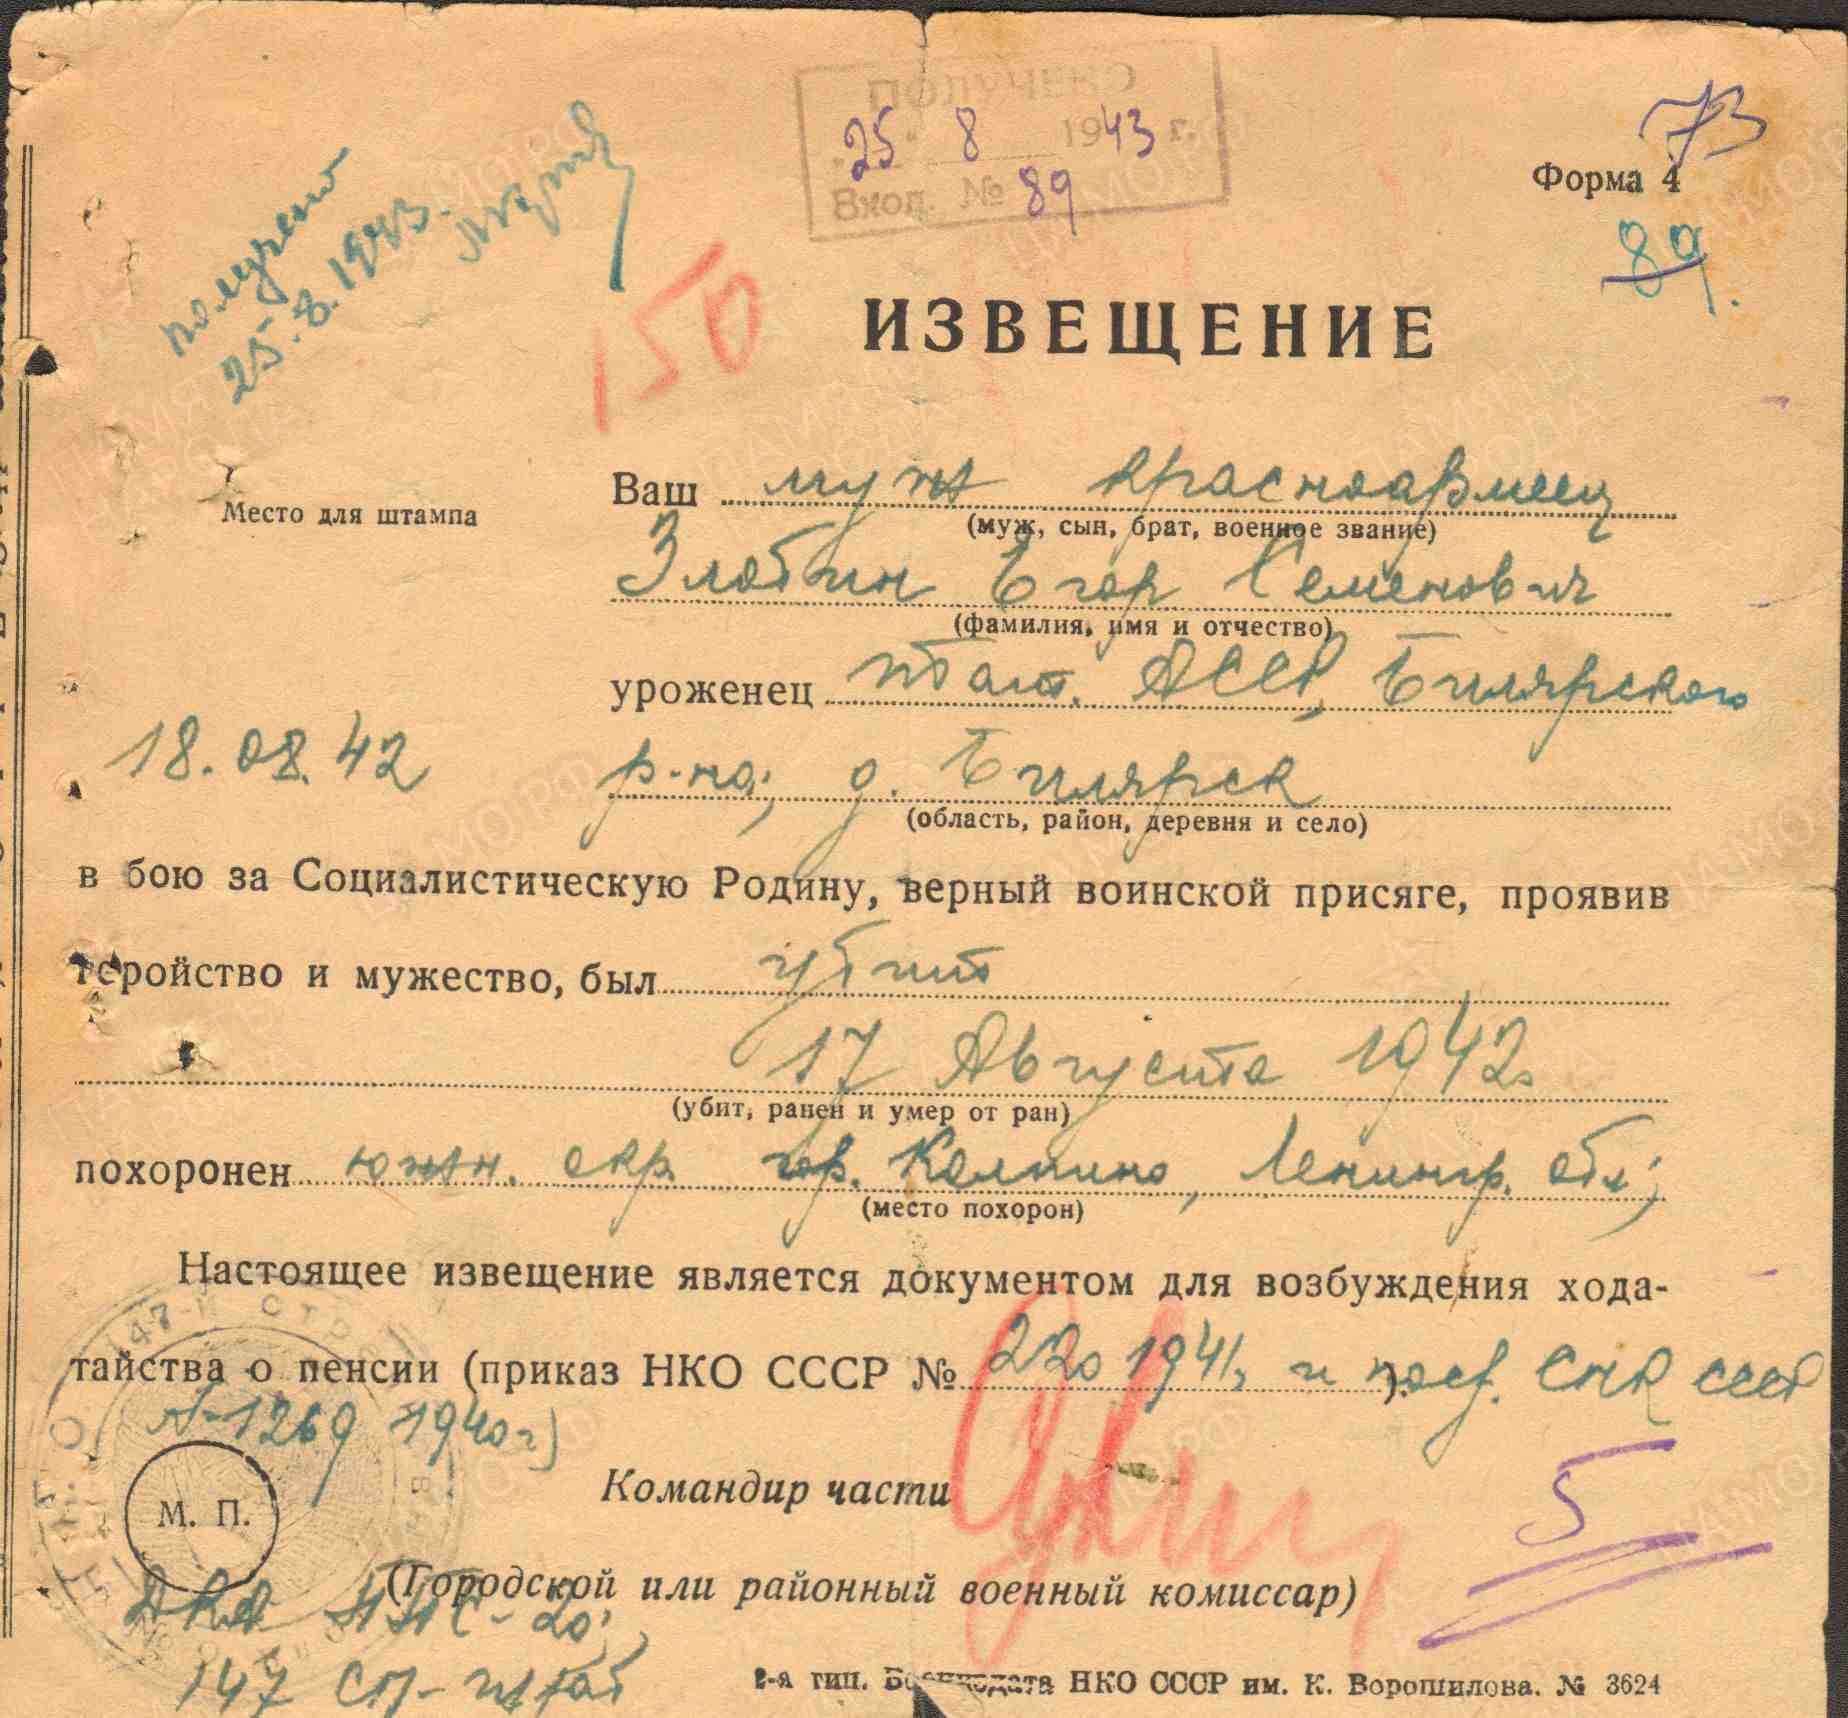 ПОЛУЧЕНО
25 8 1943 г.
Вход. № 89
73
Форма 4
89.
получено
25.8.1943.
150
ИЗВЕЩЕНИЕ
Место для штампа
Ваш муж красноармеец
(муж, сын, брат, военное звание)
Злобин Егор Семенович
(фамилия, имя и отчество)
уроженец Тат. АССР, Билярского
18.08.42
р-на, д. Билярск
(область, район, деревня и село)
в бою за Социалистическую Родину, верный воинской присяге, проявив
геройство и мужество, был убит
17 Августа 1942г.
(убит, ранен и умер от ран)
похоронен южн. окр. гор. Колпино, Ленингр. обл;
(место похорон)
Настоящее извещение является документом для возбуждения хода-
тайства о пенсии (приказ НКО СССР № 220 1941г. и пост. СНК СССР
№ 1269 1940г)
Командир части
М. П.
5
(Городской или районный военный комиссар)
ДКА ППС-20,
147 СП- штаб
2-я тип. Воениздата НКО СССР им. К. Ворошилова. № 3624